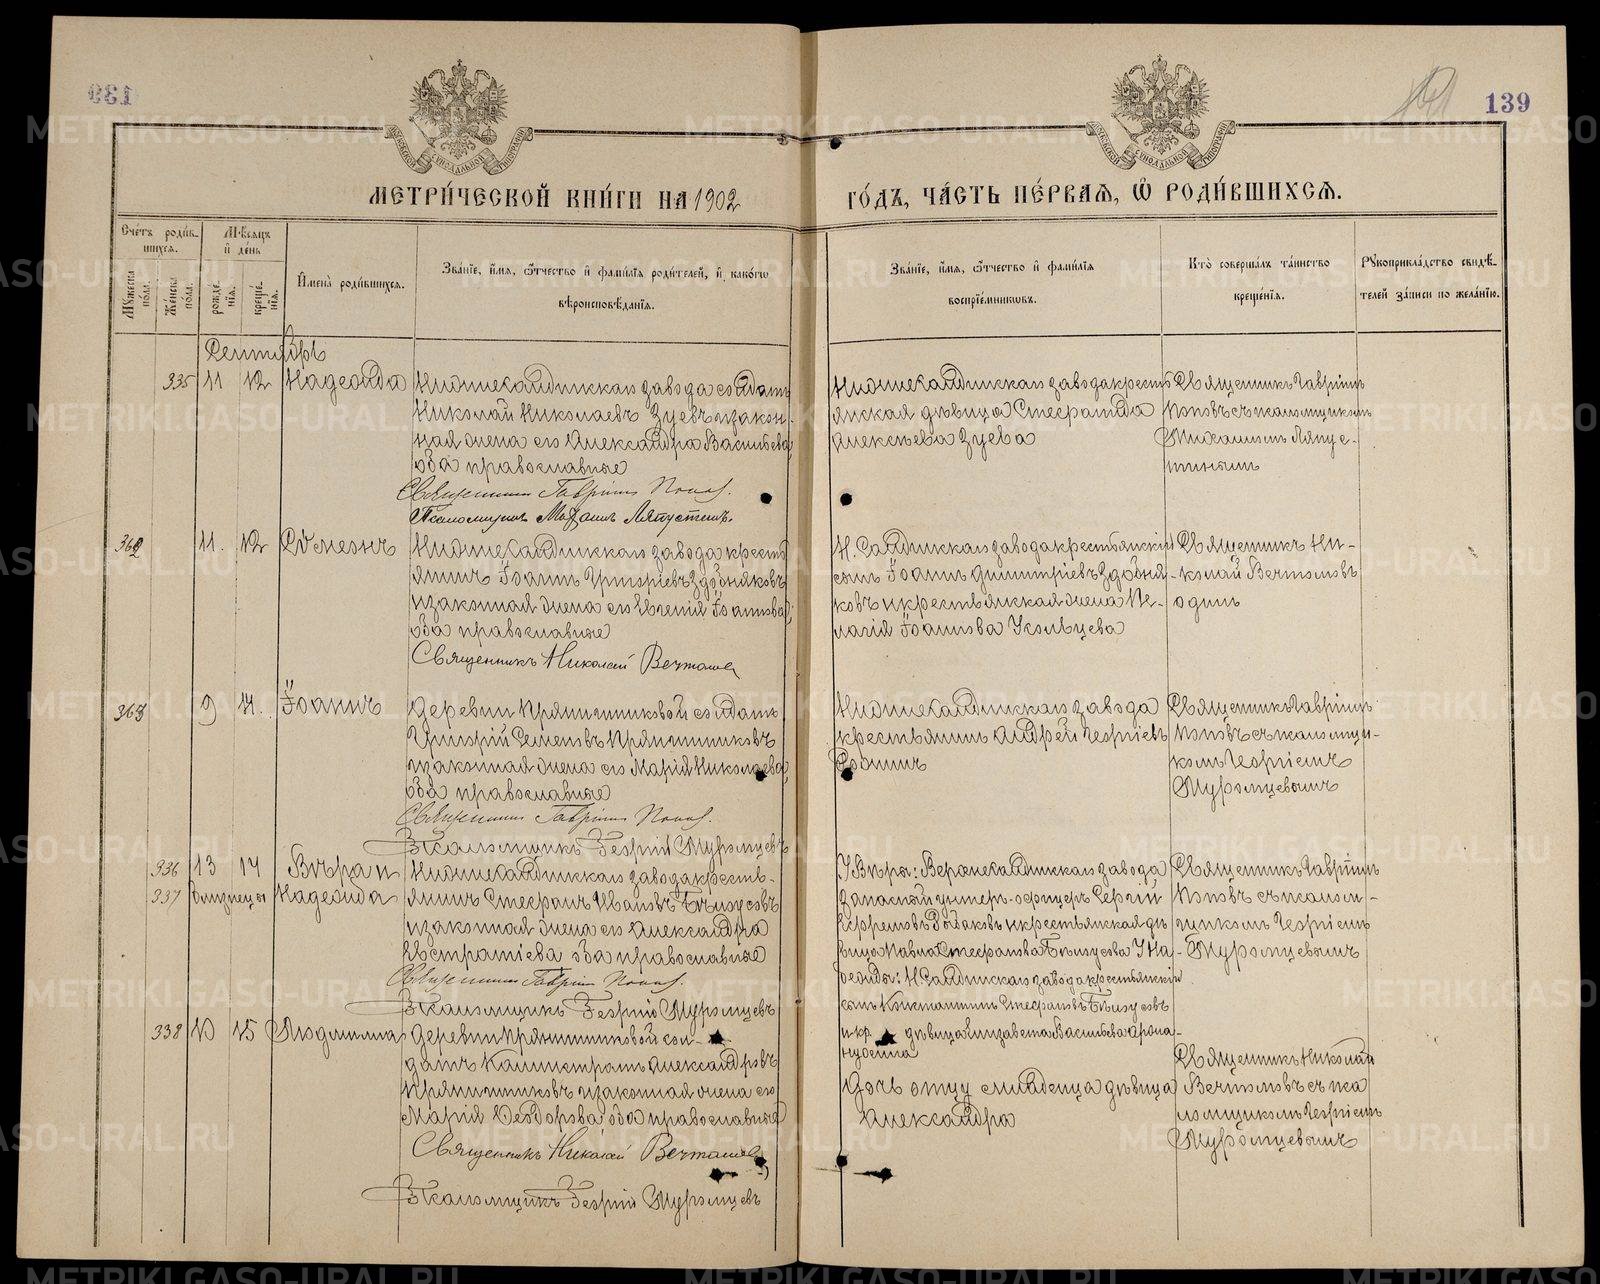 139
МЕТРИ́ЧЕСКОЙ КНИ́ГИ НА 1902 ГО́ДЪ, ЧА́СТЬ ПЕ́РВАѦ, Ѿ РОДИ́ВШИХСѦ.
Счётъ роди́вшихсѧ.
Мꙋ́жеска по́ла.
Же́нска по́ла.
Мѣсѧцъ и҆ де́нь
рожде́нїѧ.
креще́нїѧ.
И҆мена̀ роди́вшихсѧ.
Зва́нїе, и҆́мѧ, ѻ҆́тчество и҆ фами́лїѧ роди́телей, и҆ како́гѡ вѣроисповѣ́данїѧ.
Зва́нїе, и҆́мѧ, ѻ҆́тчество и҆ фами́лїѧ воспрїе́мникѡвъ.
Кто̀ соверша́лъ та́инство креще́нїѧ.
Рꙋкоприкла́дство свидѣ́телей за́писи по жела́нїю.
Сентябрь
335 11 12 Надежда
Нижнесалдинскаго завода солдатъ
Николай Николаевъ Зуевъ и закон-
ная жена его Александра Васильева,
оба православные
Священникъ Гавріилъ Поповъ.
Псаломщикъ Михаилъ Ляпустинъ.
Нижнесалдинскаго завода кресть-
янская дѣвица Стефанида
Алексѣева Зуева
Священникъ Гавріилъ
Поповъ съ псаломщикомъ
Михаиломъ Ляпус-
тинымъ
362 11. 12 Сѵмеонъ
Нижнесалдинскаго завода кресть-
янинъ Іоаннъ Григоріевъ Здобняковъ
и законная жена его Евгенія Іоаннова,
оба православные
Священникъ Николай
Н. Салдинскаго завода крестьянскій
сынъ Іоаннъ Димитріевъ Здобня-
ковъ и крестьянская жена Пе-
лагія Іоаннова Укольцева
Священникъ Ни-
колай
одинъ
363 9 14. Іоаннъ
Деревни Прянишниковой солдатъ
Григорій Семеновъ Прянишниковъ
и законная жена его Марія Николаева,
оба православные
Священникъ Гавріилъ Поповъ.
Псаломщикъ Георгій Муромцевъ
Нижнесалдинскаго завода
крестьянинъ Андрей Георгіевъ
Священникъ Гавріилъ
Поповъ съ псаломщи-
комъ Георгіемъ
Муромцевымъ
336 13 14 Вѣра и
337 близнецы Надежда
Нижнесалдинскаго завода кресть-
янинъ Стефанъ Ивановъ Бѣлоусовъ
и законная жена его Александра
Евстратіева оба православные
Священникъ Гавріилъ Поповъ.
Псаломщикъ Георгій Муромцевъ
У Вѣры: Верхнесалдинскаго завода
запасный унтеръ-офицеръ Сергій
Ефремовъ и крестьянская дѣ-
вица Павла Стефанова Бѣлоусова У На-
дежды: Н. Салдинскаго завода крестьянскій
сынъ Константинъ Стефановъ Бѣлоусовъ
и кр. дѣвица Елизавета Васильева
Священникъ Гавріилъ
Поповъ съ псалом-
щикомъ Георгіемъ
Муромцевымъ
338 10 15 Людмила
Деревни Прянишниковой сол-
датъ Каллистратъ Александровъ
Прянишниковъ и законная жена его
Марія Ѳеодорова оба православные
Священникъ Николай
Псаломщикъ Георгій Муромцевъ
Дочь отцу дѣвица
Александра
Священникъ Николай
съ пса-
ломщикомъ Георгіемъ
Муромцевымъ
METRIKI.GASO-URAL.RU